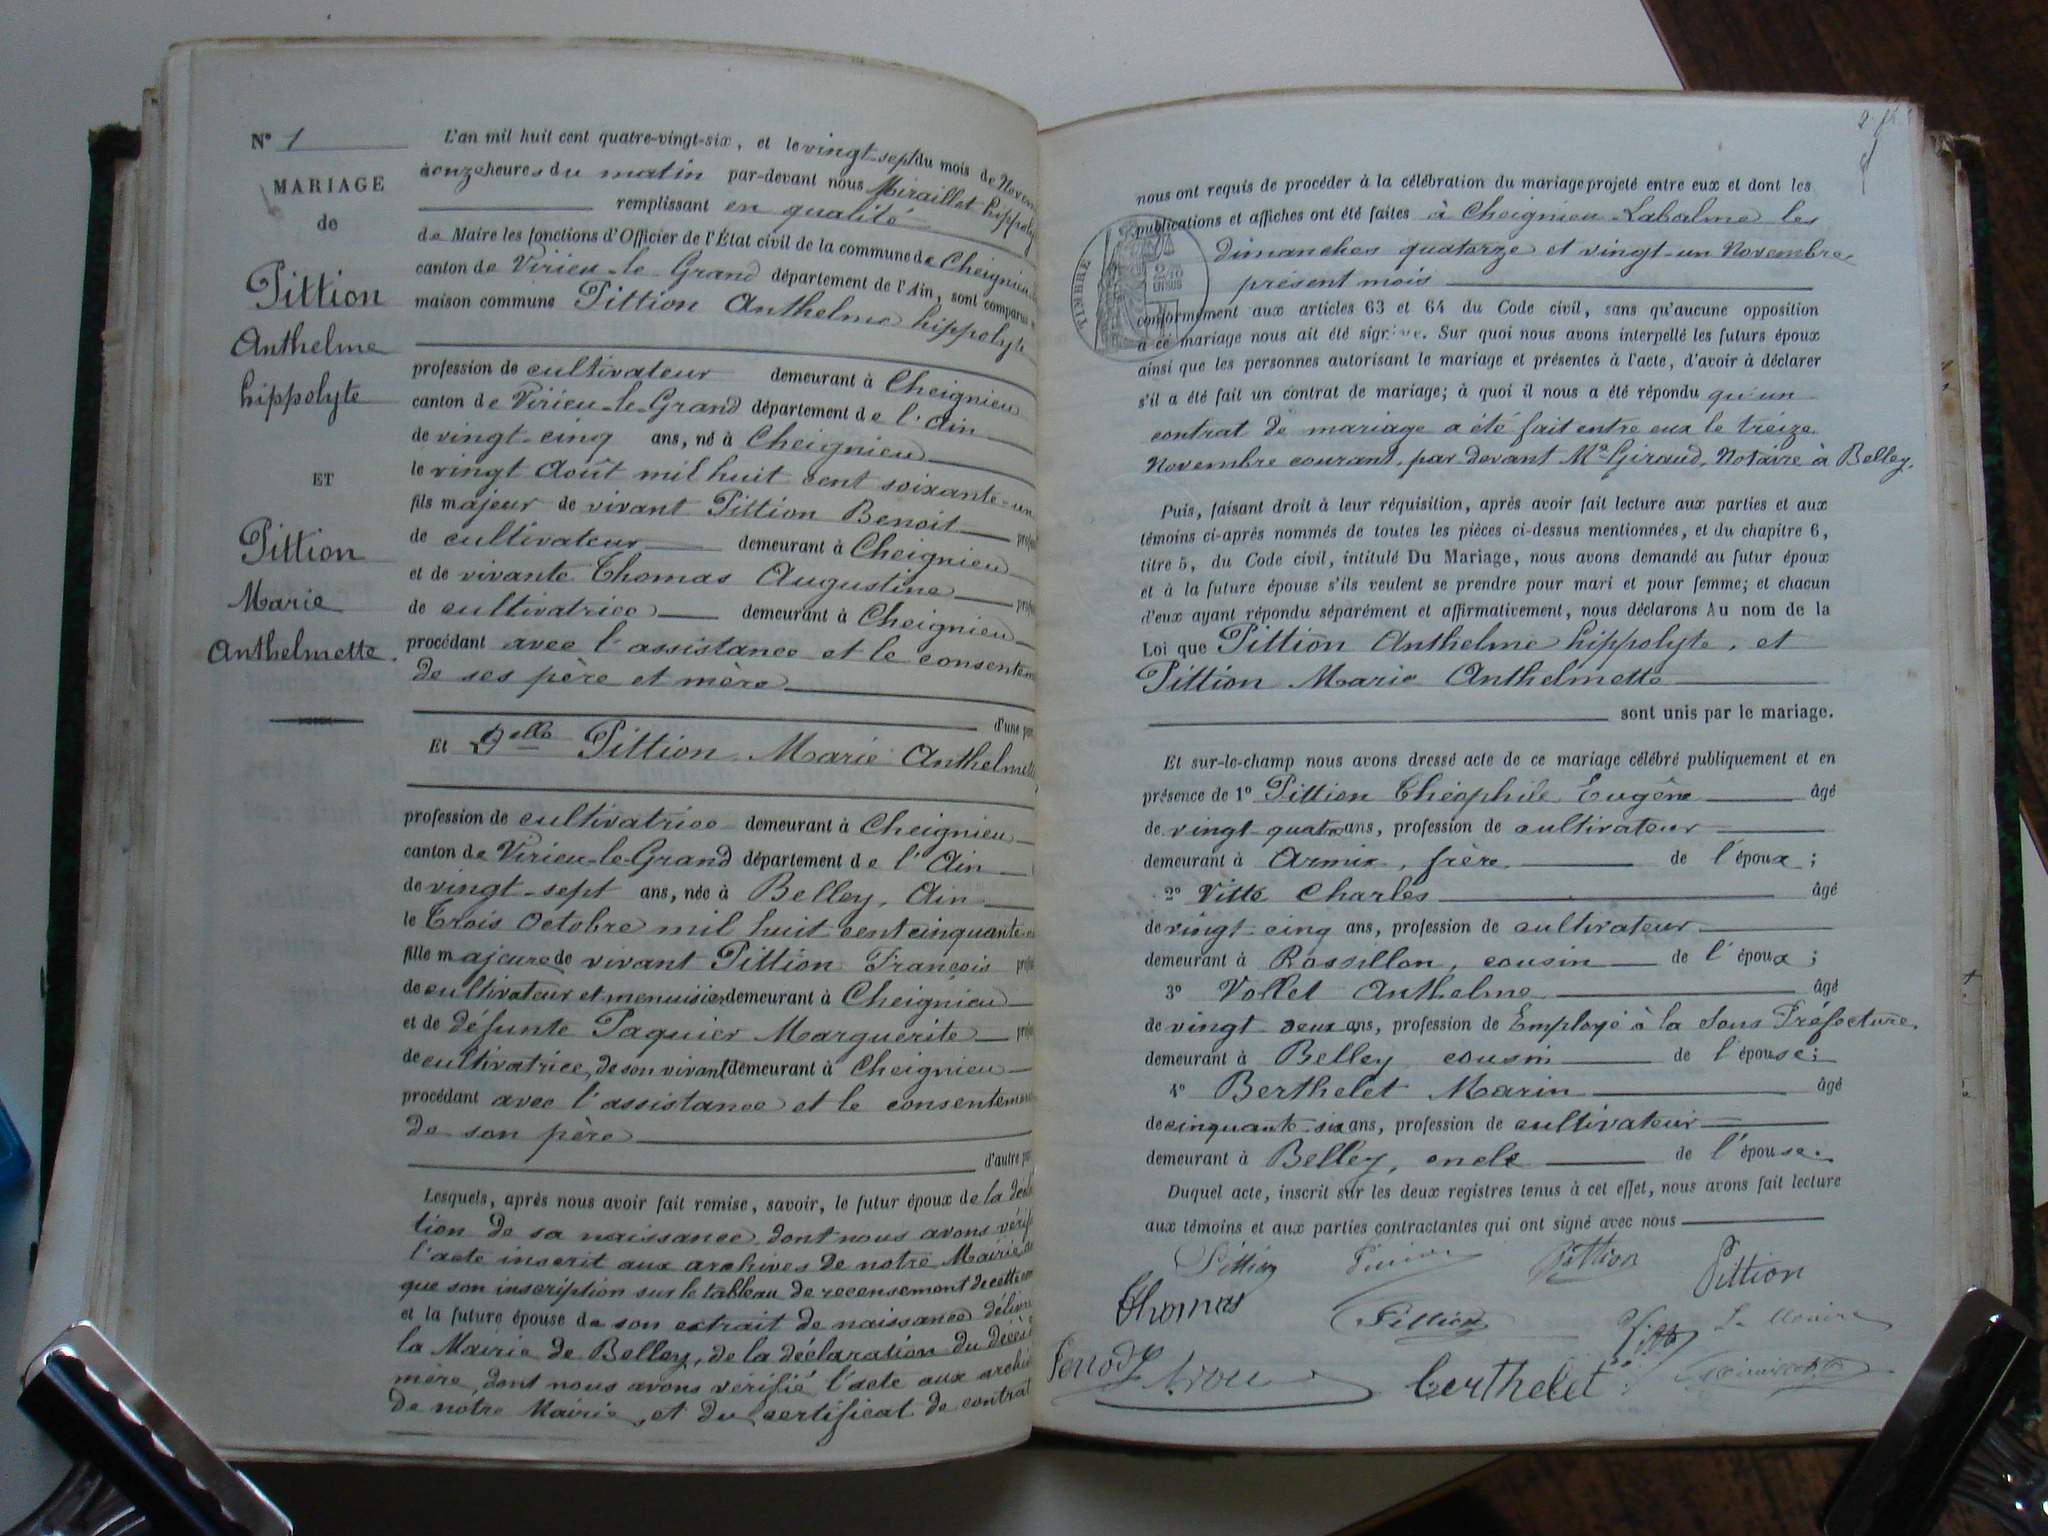 N° 1
MARIAGE
de
Pittion
Anthelme
hippolyte
ET
Pittion
Marie
Anthelmette.
L'an mil huit cent quatre-vingt-six, et le vingt-sept du mois de Novem
à onze heures du matin par-devant nous Miraillet hippoly
remplissant en qualité
de Maire les fonctions d'Officier de l'État civil de la commune de Cheignieu
canton de Virieu-le-Grand département de l'Ain, sont comparus
maison commune Pittion Anthelme hippolyte
profession de cultivateur demeurant à Cheignieu
canton de Virieu-le-Grand département de l'Ain
de vingt-cinq ans, né à Cheignieu
le vingt Août mil huit cent soixante-un
fils majeur de vivant Pittion Benoit
de cultivateur demeurant à Cheignieu
et de vivante Thomas Augustine
de cultivatrice demeurant à Cheignieu
procédant avec l'assistance et le consentem
de ses père et mère
d'une par
Et Delle Pittion Marie Anthelmette
profession de cultivatrice demeurant à Cheignieu
canton de Virieu-le-Grand département de l'Ain
de vingt-sept ans, née à Belley, Ain
le Trois Octobre mil huit cent cinquante
fille majeure de vivant Pittion François
de cultivateur et menuisier demeurant à Cheignieu
et de défunte Paquier Marguerite
de cultivatrice, de son vivant demeurant à Cheignieu
procédant avec l'assistance et le consentement
de son père
d'autre par
Lesquels, après nous avoir fait remise, savoir, le futur époux de la décla
tion de sa naissance, dont nous avons vérifi
l'acte inscrit aux archives de notre Mairie,
que son inscription sur le tableau de recensement de cette
et la future épouse de son extrait de naissance délivré
la Mairie de Belley, de la déclaration du décès
mère, dont nous avons vérifié l'acte aux archi
de notre Mairie, et du certificat de contrat
nous ont requis de procéder à la célébration du mariage projeté entre eux et dont les
publications et affiches ont été faites à Cheignieu-Labalme les
dimanches quatorze et vingt-un Novembre
présent mois
TIMBRE
conformément aux articles 63 et 64 du Code civil, sans qu'aucune opposition
à ce mariage nous ait été signifiée. Sur quoi nous avons interpellé les futurs époux
ainsi que les personnes autorisant le mariage et présentes à l'acte, d'avoir à déclarer
s'il a été fait un contrat de mariage; à quoi il nous a été répondu qu'un
contrat de mariage a été fait entre eux le treize
Novembre courant, par devant Me Giraud, Notaire à Belley.
Puis, faisant droit à leur réquisition, après avoir fait lecture aux parties et aux
témoins ci-après nommés de toutes les pièces ci-dessus mentionnées, et du chapitre 6,
titre 5, du Code civil, intitulé Du Mariage, nous avons demandé au futur époux
et à la future épouse s'ils veulent se prendre pour mari et pour femme; et chacun
d'eux ayant répondu séparément et affirmativement, nous déclarons Au nom de la
Loi que Pittion Anthelme hippolyte, et
Pittion Marie Anthelmette
sont unis par le mariage.
Et sur-le-champ nous avons dressé acte de ce mariage célébré publiquement et en
présence de 1° Pittion Théophile Eugène âgé
de vingt-quatre ans, profession de cultivateur
demeurant à Armix, frère de l'époux;
2° Vitte Charles âgé
de vingt-cinq ans, profession de cultivateur
demeurant à Rossillon, cousin de l'époux;
3° Vollet Anthelme âgé
de vingt deux ans, profession de Employé à la Sous Préfecture.
demeurant à Belley cousin de l'épouse;
4° Berthelet Marin âgé
de cinquante-six ans, profession de cultivateur
demeurant à Belley, oncle de l'épouse.
Duquel acte, inscrit sur les deux registres tenus à cet effet, nous avons fait lecture
aux témoins et aux parties contractantes qui ont signé avec nous
Pittion Pittion Pittion
Thomas Pittion Vitte Le Maire
Berthelet